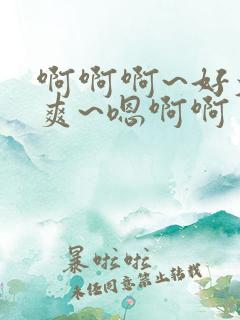 啊啊啊~好
爽~嗯啊啊
暴啦啦
未经同意禁止转载